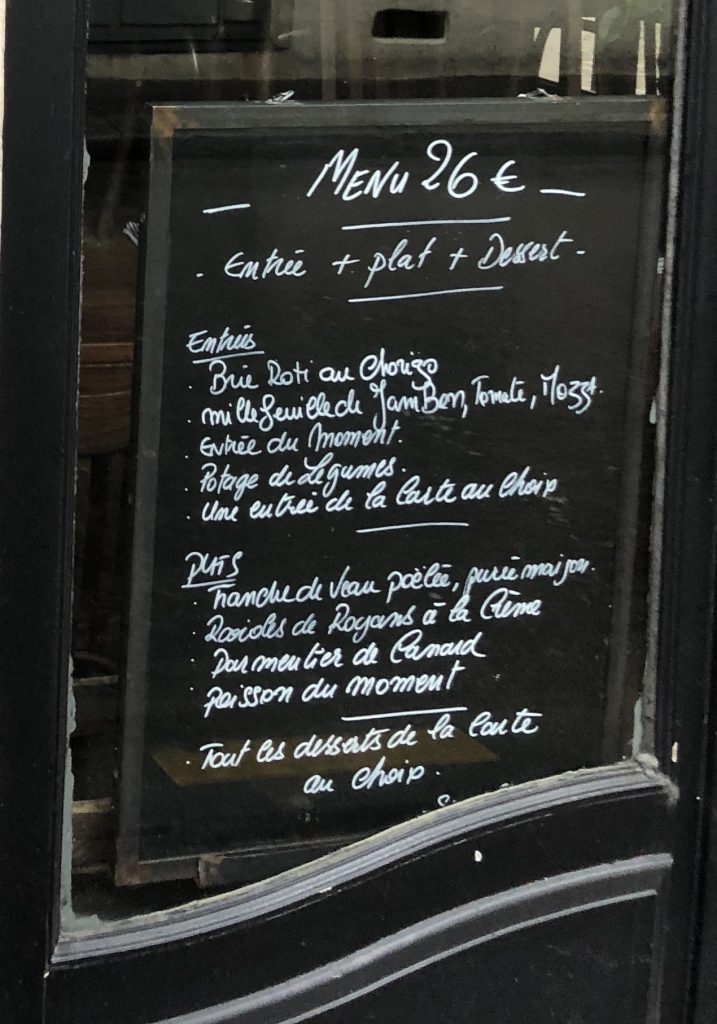 MENU 26 €
- Entrée + plat + Dessert -
Entrées
. Brie Roti au Chorizo
. millefeuille de JamBon, Tomate, Mozza.
. Entrée du Moment.
. Potage de Légumes.
. Une entrée de la Carte au Choix
PLATS
. Tranche de Veau poêlée, purée maison.
. Ravioles de Royans à la Crème
. Parmentier de Canard
. Poisson du moment
. Tout les desserts de la Carte
au choix.